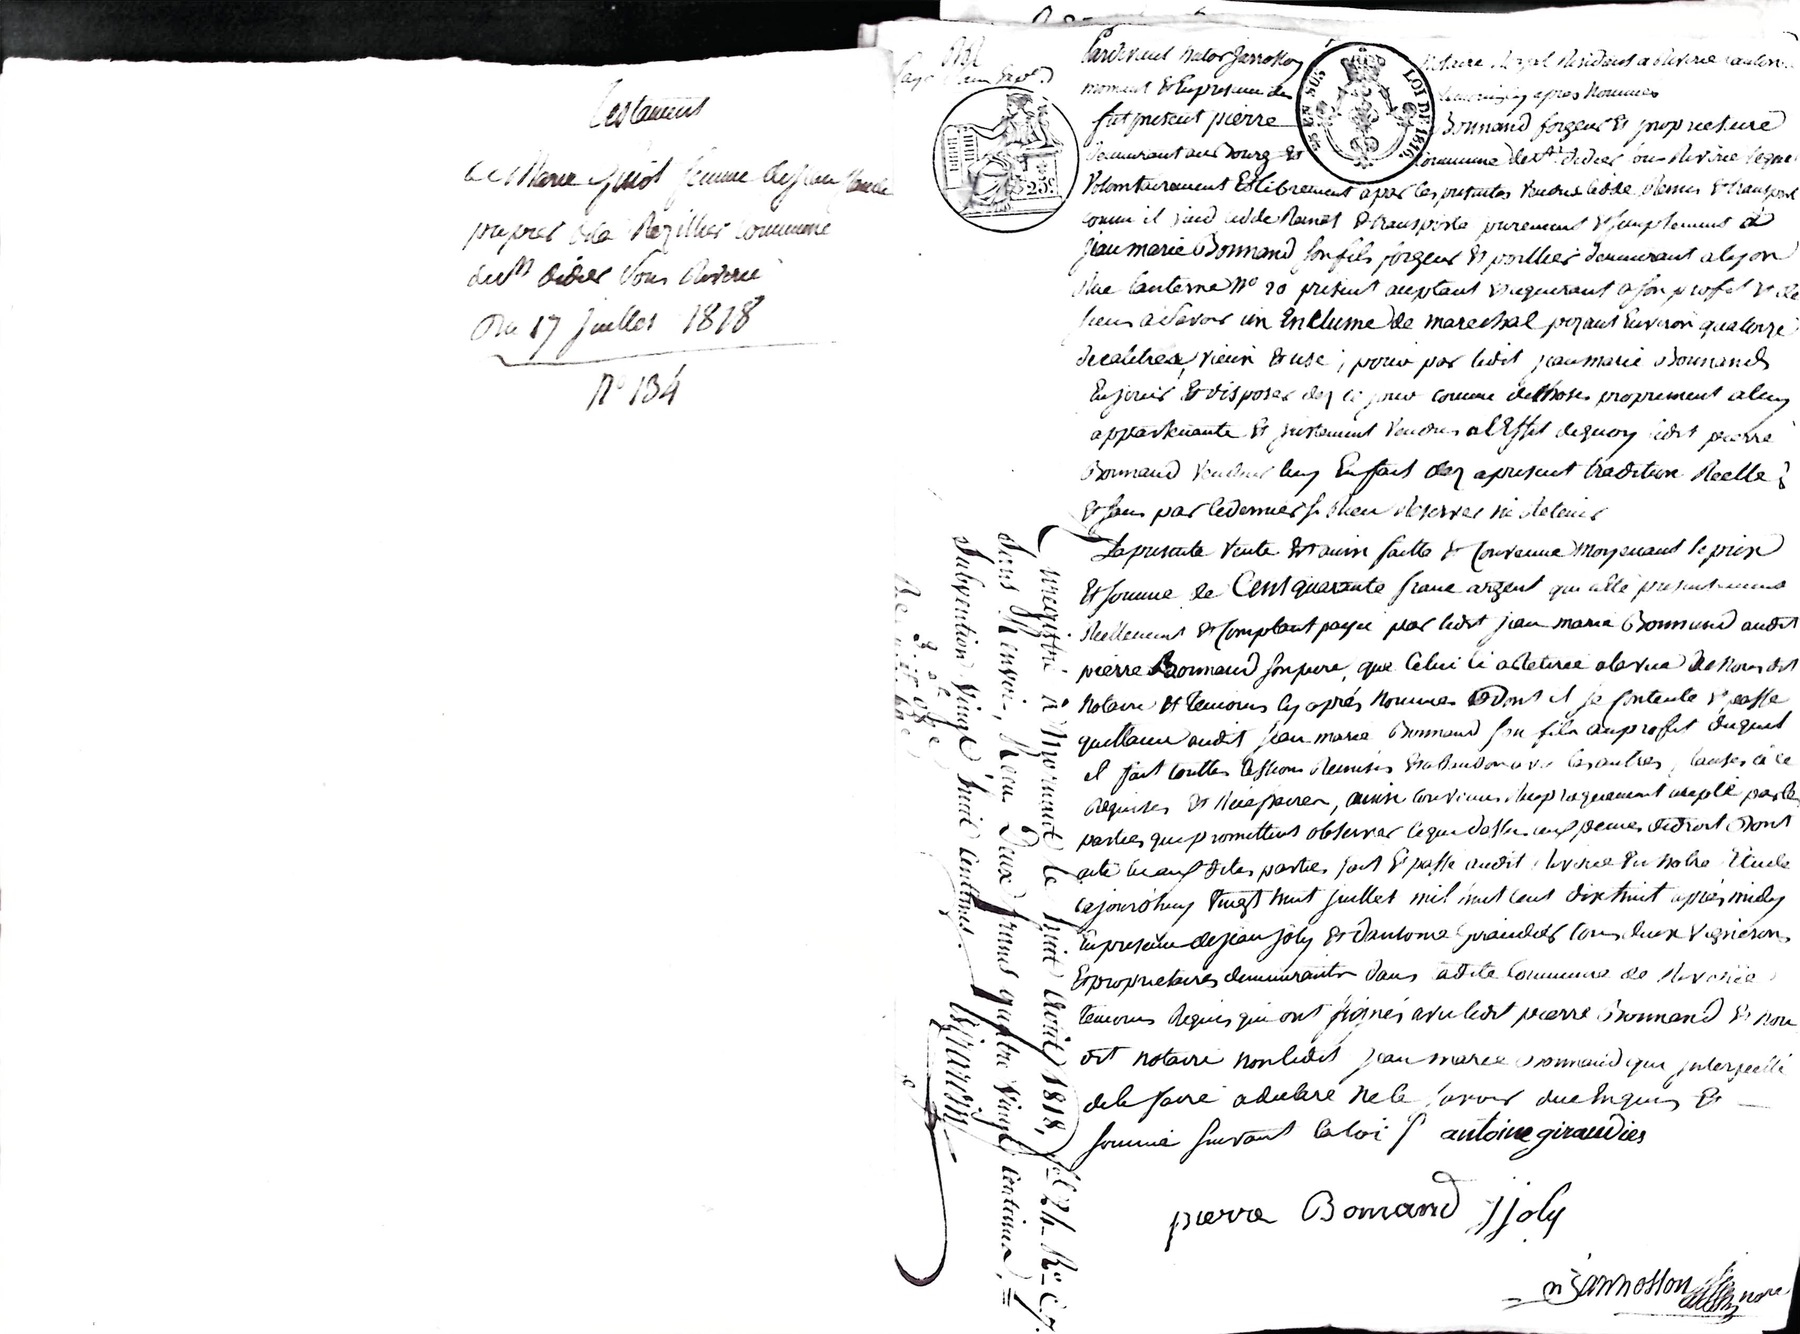 Testament
de Marie Guiot femme de Jean
commune
de St didier sous Riverie
Du 17 juillet 1818
N° 134
25 EN SUS
LOI DE 1816.
25c
Pardevant notaire Royal Résident a Riverie canton
mornant Et En presence des témoins cy apres Nommés
fut present pierre Bonnand forgeur Et propriétaire
demeurant au Bourg Et Commune de st didier sous Riverie lequel
Volontairement Et librement a par les presentes Vendu cédé Remis Et transporté
comme il vend cedde Remet Et transporte purement Et simplement a
jean marie Bonnand son fils forgeur Et demeurant a lyon
Rue lanterne N° 20 present acceptant Et Requerant a son profit Et des
siens a Savoir un Enclume de marechal pezant Environ quatorze
vieux Et usé; pour par ledit jean marie Bonnand
En jouir Et disposer dez ce jour comme de choses proprement a luy
appartenante Et justement Vendue a l'Effet de quoy ledit pierre
Bonnand Vendeur luy En fait dez apresent tradition Reelle
Et sans par ce dernier s'y Rien Reserver ni Retenir
La presente Vente Est ainsi faitte Et Convenue moyenant le prix
Et somme de Cent quarante franc argent qui a été presentement
Reellement Et Comptant payée par ledit jean marie Bonnand audit
pierre Bonnand son pere, que Celui ci a Retirée a la vue De Nous dit
Notaire Et temoins cy aprés Nommés Dont il se Contente Et passe
quittance audit jean marie Bonnand son fils au profit duquel
il fait touttes Cessions Remises Et clauses à ce
Requises Et Nécéssaires, ainsi convenu Reciproquement accepté par les
parties qui promettent observer ce que dessus aux peines de droit Dont
acte aux dites parties fait Et passé audit Riverie En Notre Etude
cejourd'huy Vingt huit juillet mil huit cent dix huit après midy
En presence de jean joly Et d'antoine giraudier tous deux Vignerons
Et propriétaires demeurants dans la dite Commune de Riverie
temoins Requis qui ont signés avec ledit pierre Bonnand Et Nou
dit Notaire Non ledit jean marie Bonnand qui interpellé
de le faire a declaré Ne le savoir de ce Enquis Et
sommé suivant la loi antoine giraudier
pierre Bonnand j joly
Jannosson
Enregistré à Mornant le huit Août 1818, fol. 24 Ro C. 7.
Sans Renvoi, Reçu Deux francs quatre Vingt centimes,
Subvention Vingt huit centimes.